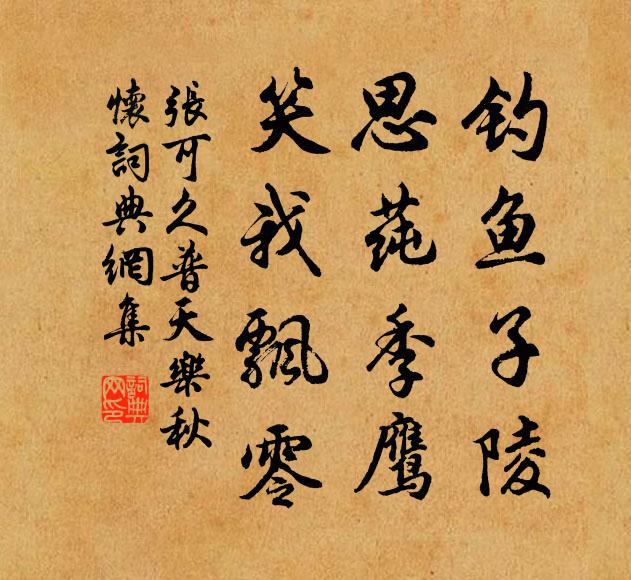 钓鱼子陵
思莼季鹰
笑我飘零
張可久普天樂秋
懷詞典網集
詞典网印